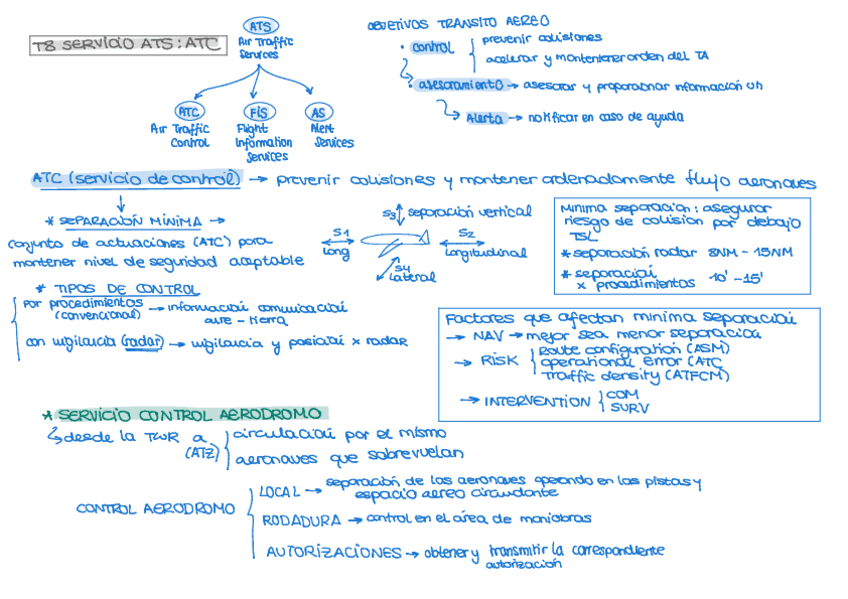 T8 SERVICIO ATS: ATC
ATS
Air Traffic
Services
ATC
Air Traffic
Control
FIS
Flight
Information
Services
AS
Alert
Services
OBJETIVOS TRÁNSITO AÉREO
control
prevenir colisiones
acelerar y mantener orden del TA
asesoramiento → asesorar y proporcionar información
Alerta → notificar en caso de ayuda
ATC (servicio de control) → prevenir colisiones y mantener ordenadamente flujo aeronaves
* SEPARACIÓN MÍNIMA →
conjunto de actuaciones (ATC) para
mantener nivel de seguridad aceptable
S3 separación vertical
S1
Long
S2
Longitudinal
S4
Lateral
Mínima separación: asegurar
riesgo de colisión por debajo
TSL
* separación radar 8NM - 15NM
* separación
x procedimientos 10' - 15'
* TIPOS DE CONTROL
Por procedimientos → información comunicación
(convencional) aire - tierra
con vigilancia (radar) → vigilancia y posición x radar
Factores que afectan mínima separación
→ NAV → mejor sea menor separación
→ RISK
Route configuration (ASM)
operational error (ATC
Traffic density (ATFCM)
→ INTERVENTION
COM
SURV
* SERVICIO CONTROL AERÓDROMO
desde la TWR a
(ATZ)
circulación por el mismo
aeronaves que sobrevuelan
CONTROL AERÓDROMO
LOCAL → separación de las aeronaves operando en las pistas y
espacio aéreo circundante
RODADURA → control en el área de maniobras
AUTORIZACIONES → obtener y transmitir la correspondiente
autorización